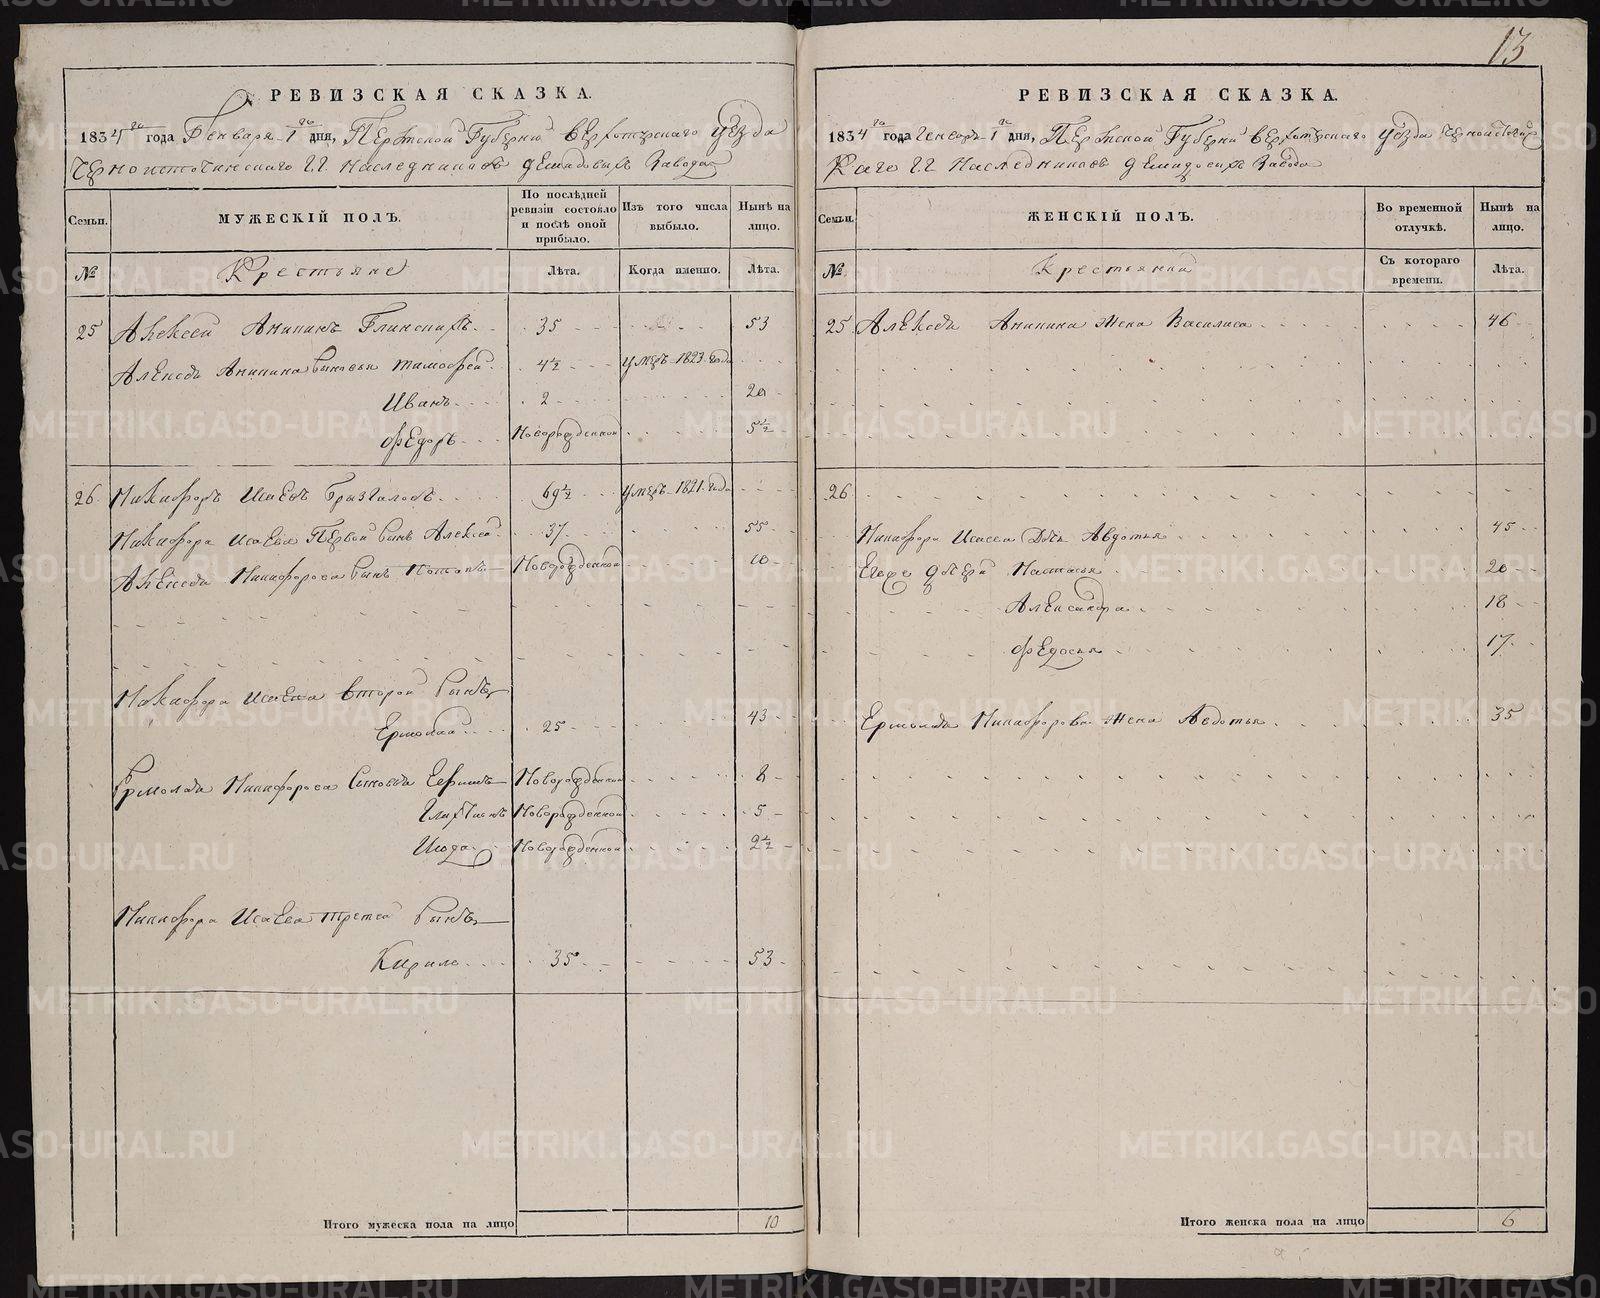 13
РЕВИЗСКАЯ СКАЗКА.
1834го года Генваря 1го дня, Пермской Губернiи Верхотурскаго уѣзда
Черноисточинскаго Г.Г. Наследниковъ Демидовыхъ Завода
Семьи.
МУЖЕСКIЙ ПОЛЪ.
По послѣдней ревизiи состояло и послѣ оной прибыло.
Изъ того числа выбыло.
Нынѣ на лицо.
№
Крестьяне
Лѣта.
Когда именно.
Лѣта.
25 Алексей Ананьинъ Глинскихъ 35 53
Алексея Ананьина сыновья Тимофей 4½ умеръ 1823 года
Иванъ 2 20
Федоръ Новорожденной 5½
26 Никифоръ Исаевъ Брызгаловъ 69½ умеръ 1821 года
Никифора Исаева Первой сынъ Алексей 37 55
Алексея Никифорова сынъ Потапъ Новорожденной 10
Никифора Исаева второй сынъ
Ермолай 25 43
Ермолая Никифорова сыновья Ефимъ Новорожденной 8
Новорожденной 5
Июда Новорожденной 2½
Никифора Исаева третей сынъ
Кирило 35 53
Итого мужеска пола на лицо 10
РЕВИЗСКАЯ СКАЗКА.
1834го года Генваря 1го дня, Пермской Губернiи Верхотурскаго уѣзда Черноисточин
скаго Г.Г. Наследниковъ Демидовыхъ Завода
Семьи.
ЖЕНСКIЙ ПОЛЪ.
Во временной отлучкѣ.
Нынѣ на лицо.
№
Крестьянки
Съ котораго времени.
Лѣта.
25 Алексея Ананьина жена Василиса 46
26
Никифора Исаева Дочь Авдотья 45
Егоже Дѣтери Настасья 20
Александра 18
Федосья 17
Ермолая Никифорова жена Авдотья 35
Итого женска пола на лицо 6
METRIKI.GASO-URAL.RU